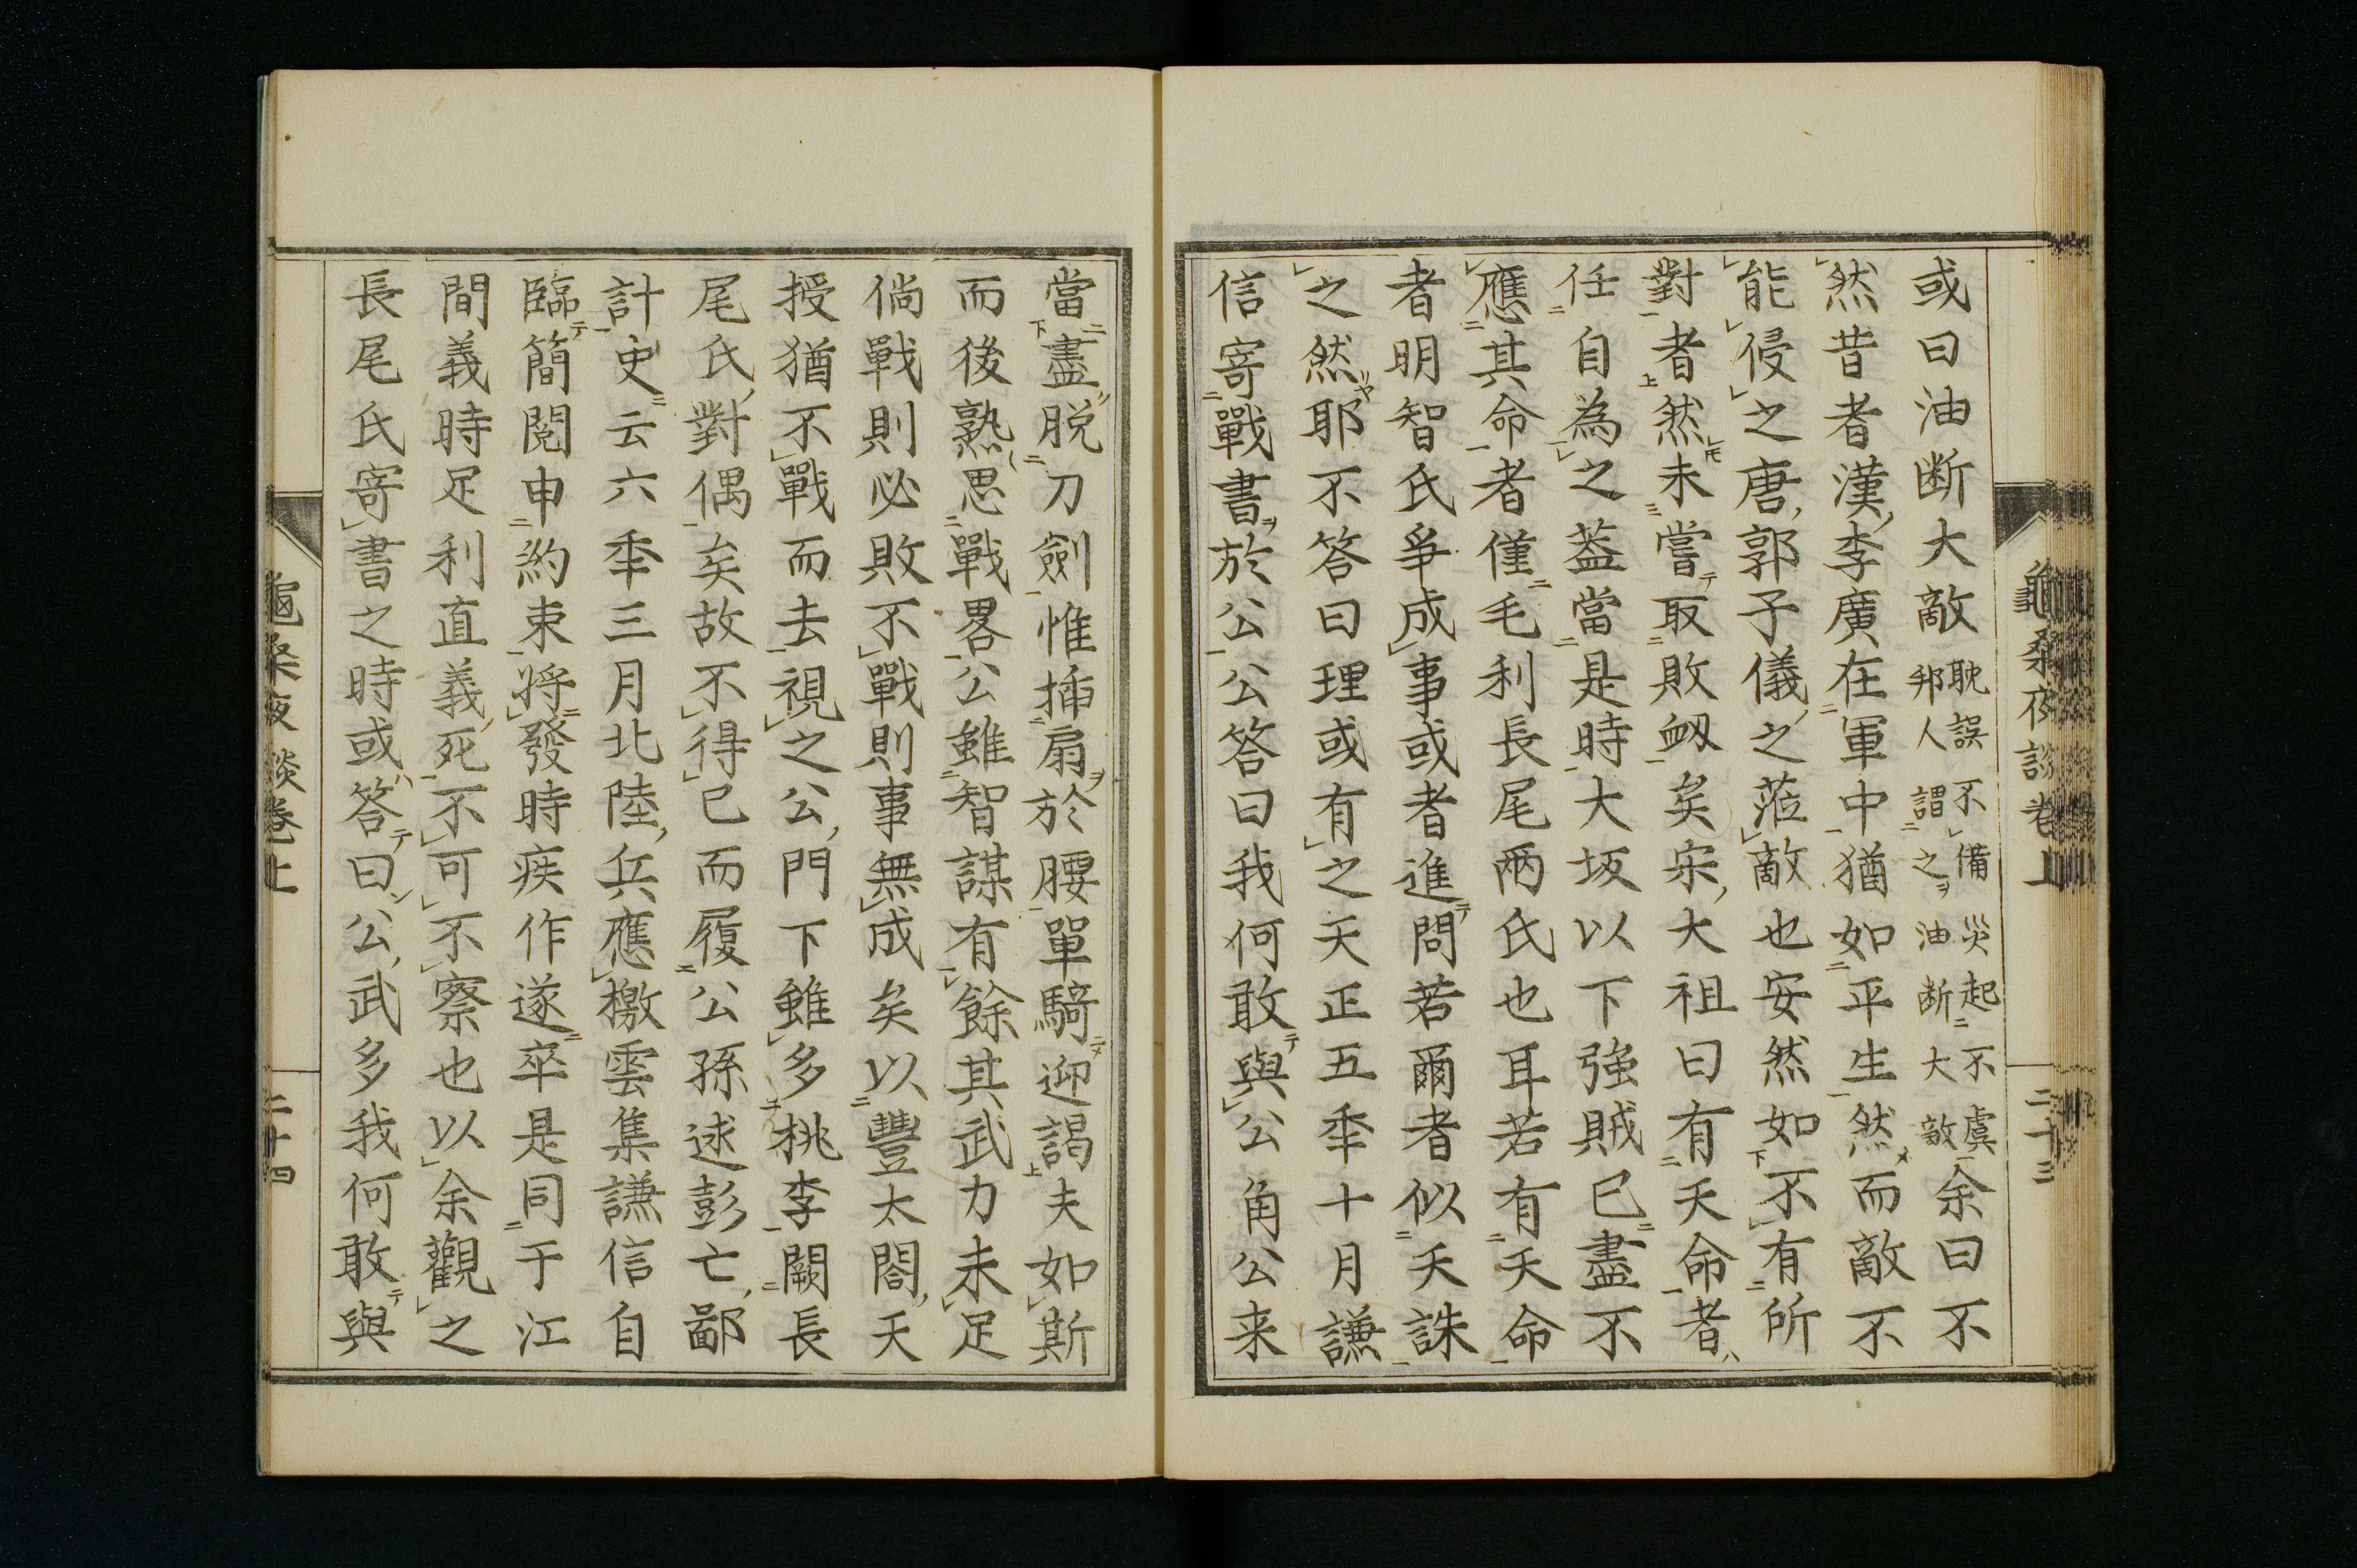 龜桑夜談卷上 二十三
或曰油断大敵耽誤不備災起不虞邦人謂之油断大敵余曰不
然昔者漢李廣在軍中猶如平生然而敵不
能侵之唐郭子儀之蒞敵也安然如不有所
對者然未嘗取敗衂矣宋大祖曰有天命者
任自為之葢當是時大坂以下強賊已盡不
應其命者僅毛利長尾兩氏也耳若有天命
者明智氏爭成事或者進問若爾者似天誅
之然耶不答曰理或有之天正五秊十月謙
信寄戰書於公公答曰我何敢與公角公来
當盡脱刀劍惟揷扇於腰單騎迎謁夫如斯
而後熟思戰畧公雖智謀有餘其武力未足
倘戰則必敗不戰則事無成矣以豐太閤天
授猶不戰而去視之公門下雖多桃李闕長
尾氏對偶矣故不得已而履公孫述彭亡鄙
計史云六秊三月北陸兵應檄雲集謙信自
臨簡閲申約束将發時疾作遂卒是同于江
間義時足利直義死不可不察也以余觀之
長尾氏寄書之時或答曰公武多我何敢與
龜桑夜談卷上 二十四